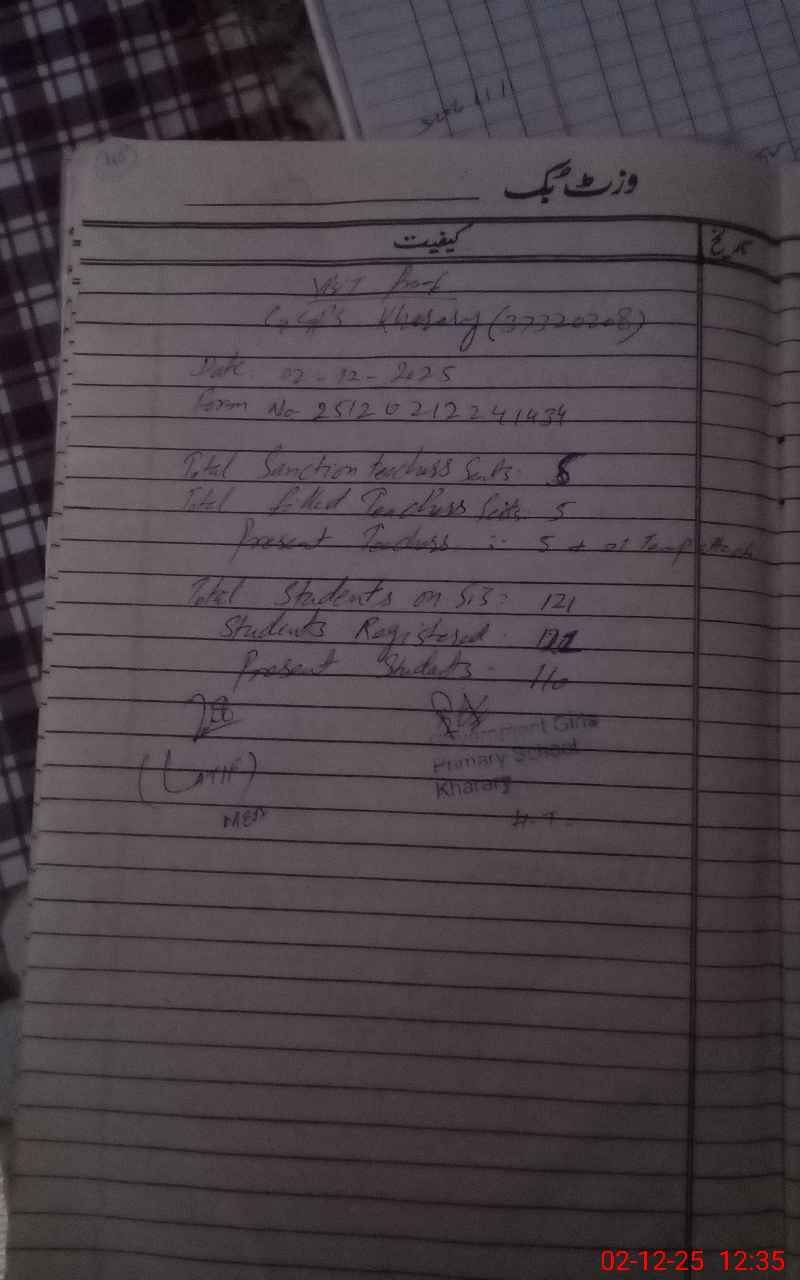 وزٹ بک
کیفیت
تاریخ
Visit Proof
GGPS Kharary (37320208)
Date: 02-12-2025
Form No 25120212241434
Total Sanction teachers Seats: 5
Total filled Teachers Seats 5
Present Teachers :- 5 + 01 Temp
Total Students on SIS: 121
Students Registered. 121
Present Students - 110
Government Girls
Primary School
Kharary
(LATIF)
MEA
H.T.
02-12-25 12:35